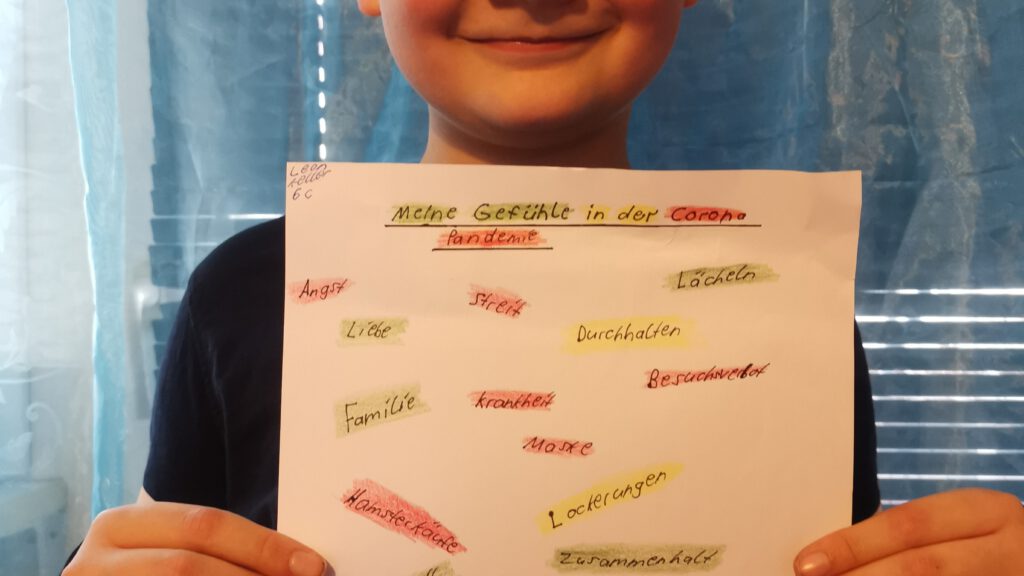 Leon
Keller
6c
Meine Gefühle in der Corona
Pandemie
Angst
Streit
Lächeln
Liebe
Durchhalten
Besuchsverbot
Familie
Krankheit
Maske
Hamsterkäufe
Lockerungen
Zusammenhalt